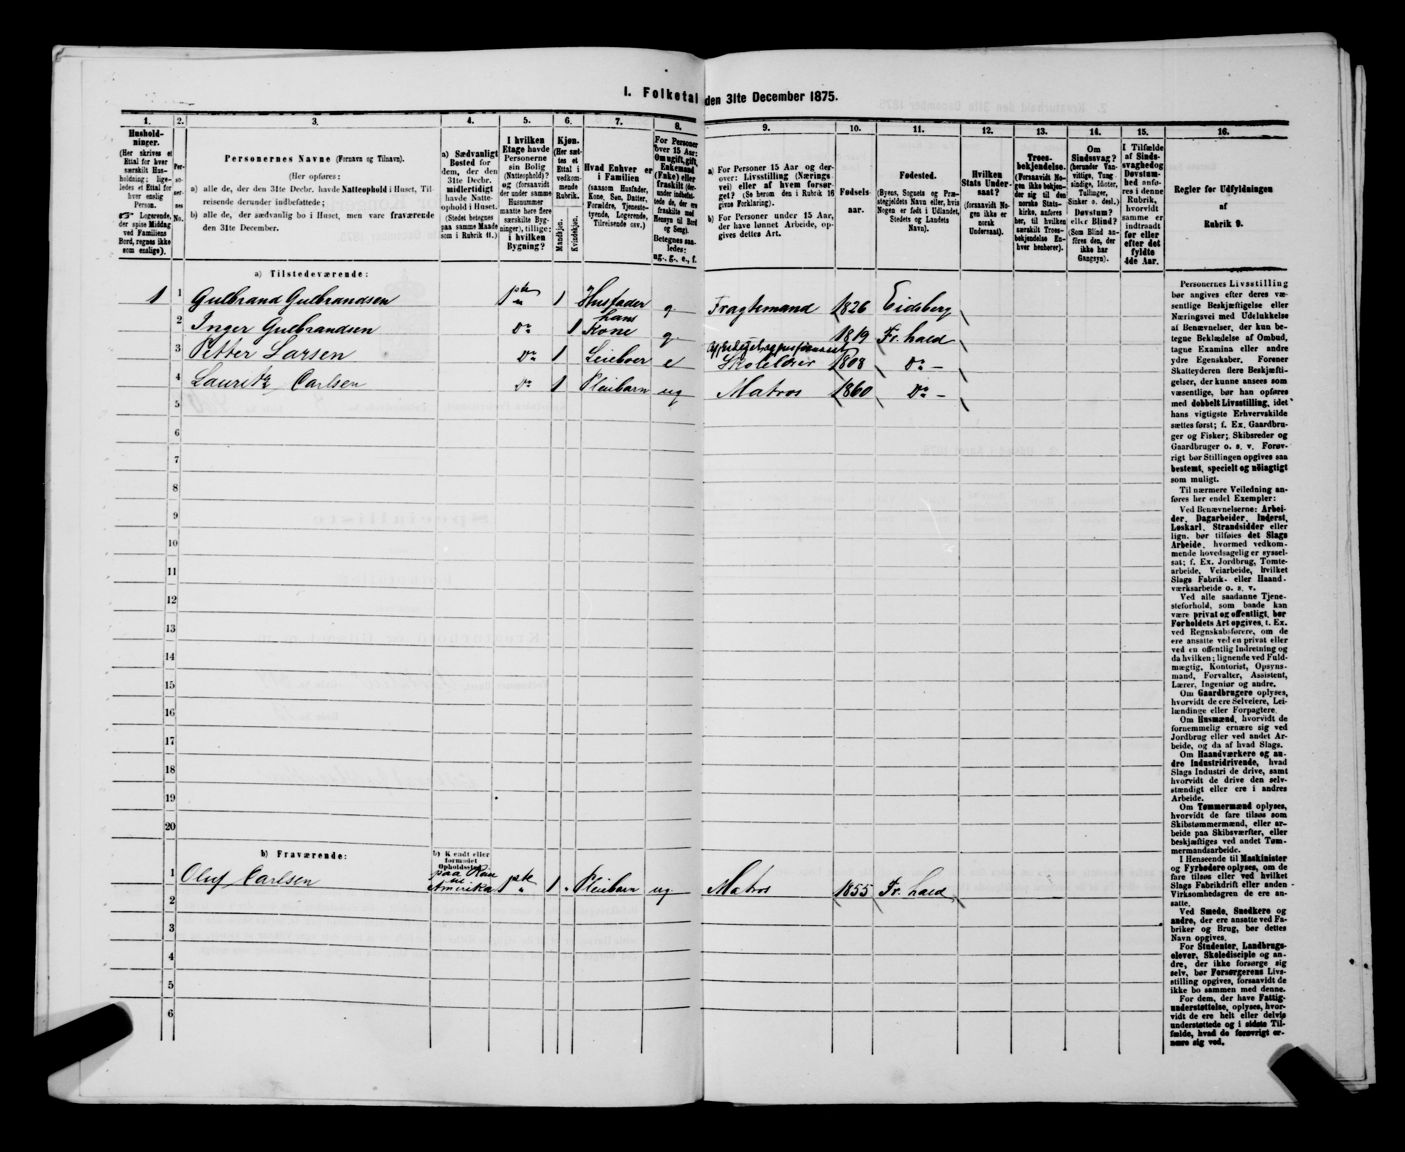 I. Folketal den 31te December 1875.
1. 2. 3. 4. 5. 6. 7. 8. 9. 10. 11. 12. 13. 14. 15. 16.
Hushold-
ninger.
(Her skrives et
Ettal for hver
særskilt Hus-
holdning; lige-
ledes et Ettal for
hver enslig
Person.
☞ Logerende,
der spise Middag
ved Familiens
Bord, regnes ikke
som enslige).
Per-
so-
ner-
nes
No.
Personernes Navne (Fornavn og Tilnavn).
(Her opføres:
a) alle de, der den 31te Decbr. havde Natteophold i Huset, Til-
reisende derunder indbefattede;
b) alle de, der sædvanlig bo i Huset, men vare fraværende
den 31te December.
a) Sædvanligt
Bosted for
dem, der den
31te Decbr.
midlertidigt
havde Natte-
ophold i Huset.
(Stedet betegnes
paa samme Maade
som i Rubrik 11.)
I hvilken
Etage havde
Personerne
sin Bolig
(Natteophold)?
og (forsaavidt
der under samme
Husnummer
maatte høre flere
særskilte Byg-
ninger), tillige:
i hvilken
Bygning?
Kjøn.
(Her sæt-
tes et
Ettal i
vedkom-
mende
Rubrik.
Mandkjøn.
Kvindekjøn.
Hvad Enhver er
i Familien
(saasom Husfader,
Kone, Søn, Datter,
Forældre, Tjeneste-
tyende, Logerende,
Tilreisende osv.)
For Personer
over 15 Aar:
Om ugift, gift,
Enkemand
(Enke) eller
fraskilt (der-
under indbefat-
tede de, der ere
fraskilte med
Hensyn til Bord
og Seng).
Betegnes saa-
ledes:
ug., g., e., f.
a) For Personer 15 Aar og der-
over: Livsstilling (Nærings-
vei) eller af hvem forsør-
get? (Se herom den i Rubrik 16
givne Forklaring).
b) For Personer under 15 Aar,
der have lønnet Arbeide, op-
gives dettes Art.
Fødsels-
aar.
Fødested.
(Byens, Sognets og Præ-
stegjeldets Navn eller, hvis
Nogen er født i Udlandet,
Stedets og Landets
Navn).
Hvilken
Stats Under-
saat?
(forsaavidt No-
gen ikke er
norsk
Undersaat).
Troes-
bekjendelse.
(Forsaavidt No-
gen ikke bekjen-
der sig til den
norske Stats-
kirke, anføres
her, til hvilken
særskilt Troes-
bekjendelse En-
hver henhører).
Om
Sindssvag?
(herunder Van-
vittige, Tung-
sindige, Idioter,
Tullinger,
Sinker o. desl.)
Døvstum?
eller Blind?
(Som Blind an-
føres den, der
ikke har
Gangsyn).
I Tilfælde
af Sinds-
svaghed og
Døvstum-
hed anfø-
res i denne
Rubrik,
hvorvidt
samme er
indtraadt
før eller
efter det
fyldte
4de Aar.
Regler for Udfyldningen
af
Rubrik 9.
a) Tilstedeværende:
1 1 Gulbrand Gulbrandsen 1ste 1 Husfader g. Fragtemand 1826 Eidsberg
2 Inger Gulbrandsen Do 1 hans Kone g. 1819 Fr. hald
3 Petter Larsen Do 1 Leieboer e Skolelærer 1808 Do –
4 Lauritz Carlsen Do 1 Pleiebarn ug Matros 1860 Do –
5
6
7
8
9
10
11
12
13
14
15
16
17
18
19
20
b) Fraværende:
b) Kjendt eller
formodet
Opholdssted.
1 Oluf Carlsen paa Reise til Amerika 1ste 1 Pleiebarn ug. Matros 1855 Fr. hald
2
3
4
5
6
Personernes Livsstilling
bør angives efter deres væ-
sentlige Beskjæftigelse eller
Næringsvei med Udelukkelse
af Benævnelser, der kun be-
tegne Beklædelse af Ombud,
tagne Examina eller andre
ydre Egenskaber. Forener
Skatteyderen flere Beskjæfti-
gelser, der kunne ansees som
væsentlige, bør han opføres
med dobbelt Livsstilling, idet
hans vigtigste Erhvervskilde
sættes først; f. Ex. Gaardbru-
ger og Fisker; Skibsreder og
Gaardbruger o. s. v. Forøv-
rigt bør Stillingen opgives saa
bestemt, specielt og nøiagtigt
som muligt.
Til nærmere Veiledning an-
føres her endel Exempler:
Ved Benævnelserne: Arbei-
der, Dagarbeider, Inderst,
Løskarl, Strandsidder eller
lign. bør tilføies det Slags
Arbeide, hvormed vedkom-
mende hovedsagelig er syssel-
sat; f. Ex. Jordbrug, Tomte-
arbeide, Veiarbeide, hvilket
Slags Fabrik- eller Haand-
værksarbeide o. s. v.
Ved alle saadanne Tjene-
steforhold, som baade kan
være privat og offentligt, bør
Forholdets Art opgives, t. Ex.
ved Regnskabsførere, om de
ere ansatte ved en privat eller
ved en offentlig Indretning og
da hvilken; lignende ved Fuld-
mægtig, Kontorist, Opsyns-
mand, Forvalter, Assistent,
Lærer, Ingeniør og andre.
Om Gaardbrugere oplyses,
hvorvidt de ere Selveiere, Lei-
lændinge eller Forpagtere.
Om Husmænd, hvorvidt de
fornemmelig ernære sig ved
Jordbrug eller ved andet Ar-
beide, og da af hvad Slags.
Om Haandværkere og an-
dre Industridrivende, hvad
Slags Industri de drive, samt
hvorvidt de drive den selv-
stændigt eller ere i andres
Arbeide.
Om Tømmermænd oplyses,
hvorvidt de fare tilsøs som
Skibstømmermænd, eller ar-
beide paa Skibsværfter, eller
beskjæftiges ved andet Tøm-
mermandsarbeide.
I Henseende til Maskinister
og Fyrbødere oplyses, om de
fare tilsøs eller ved hvilket
Slags Fabrikdrift eller anden
Virksomhedsgren de ere an-
satte.
Ved Smede, Snedkere og
andre, der ere ansatte ved Fa-
briker og Brug, bør dettes
Navn opgives.
For Studenter, Landbrugs-
elever, Skoledisciple og an-
dre, der ikke forsørge sig
selv, bør Forsørgerens Livs-
stilling opgives, forsaavidt de
ikke bo sammen med denne.
For dem, der have Fattig-
understøttelse, oplyses, hvor-
vidt de ere helt eller delvis
understøttede og i sidste Til-
fælde, hvad de forøvrigt er-
nære sig ved.